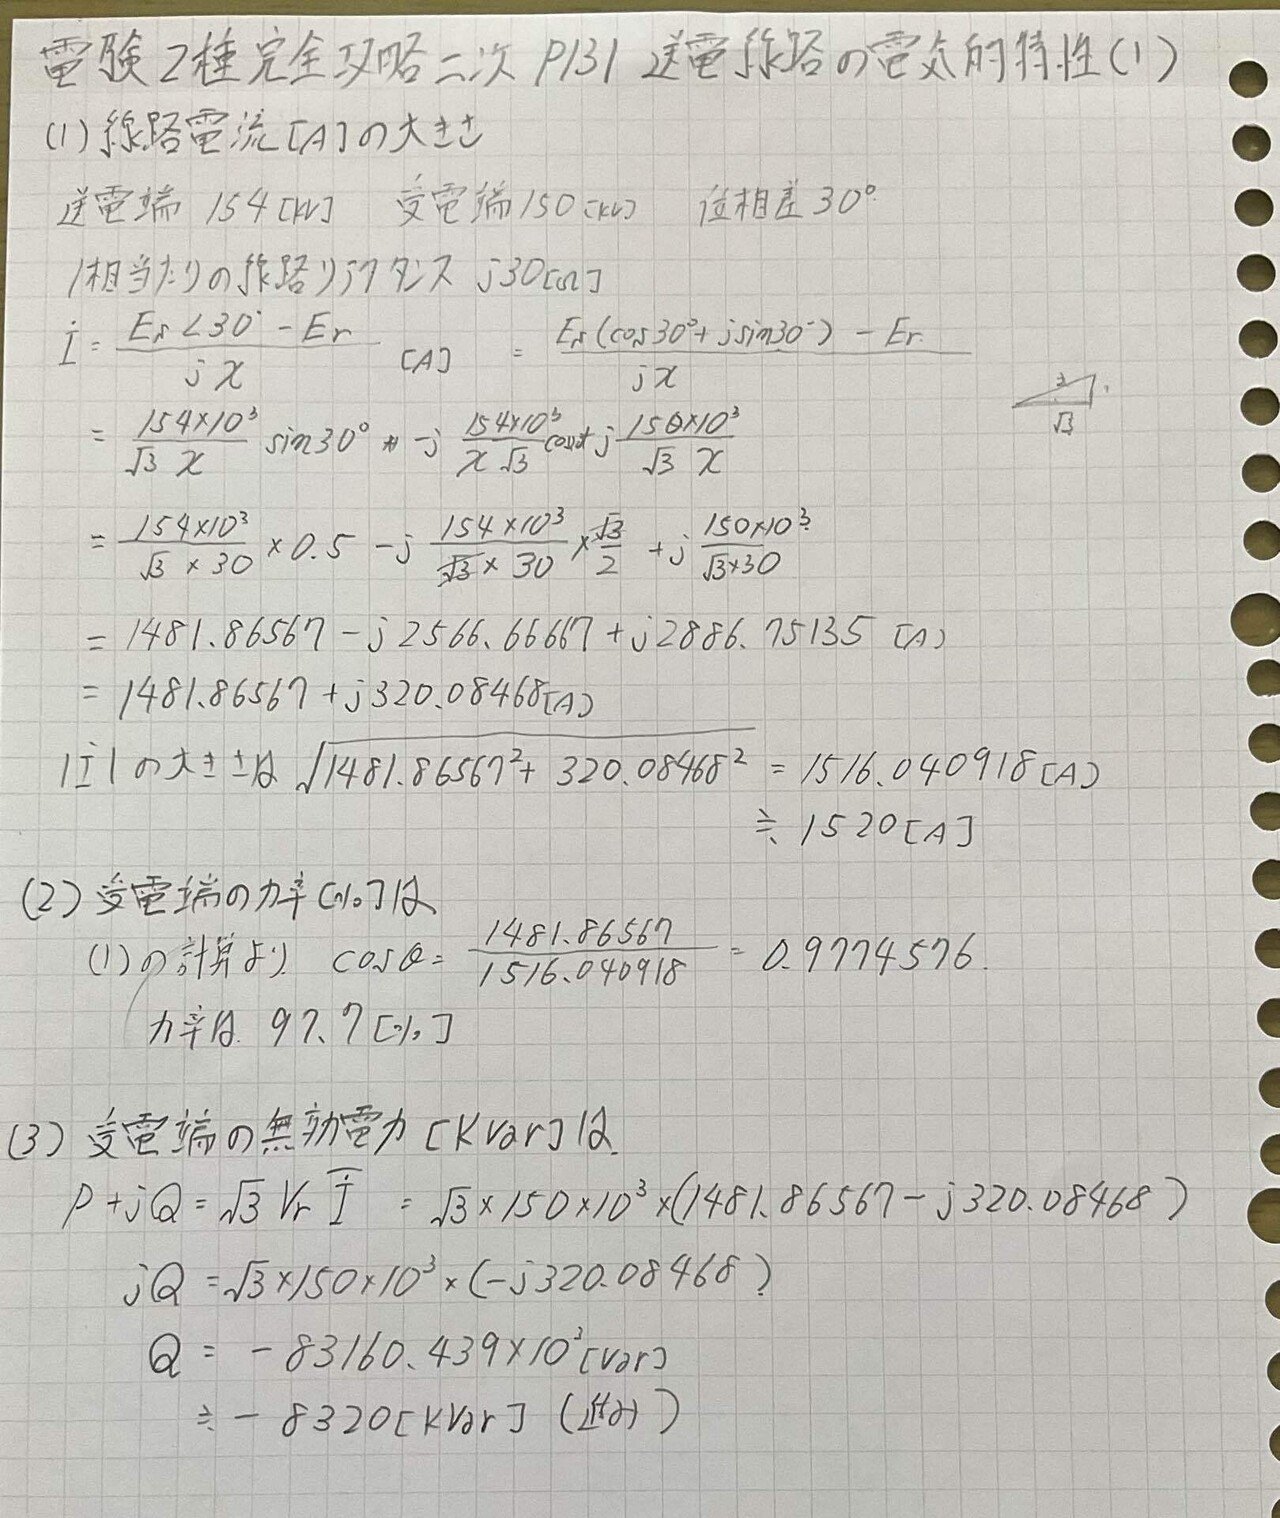 電験2種完全攻略二次 P131 送電線路の電気的特性(1)
(1) 線路電流[A]の大きさ
送電端 154[kV] 受電端150[kV] 位相差30°
1相当たりの線路リアクタンス j30[Ω]
İ = (Es∠30° - Er)/(jx) [A] = (Es(cos30°+jsin30°) - Er)/(jx)
2 1 √3
= (154×10³)/(√3 x) sin30° -j (154×10³)/(x √3) cos +j (150×10³)/(√3 x)
= (154×10³)/(√3 × 30) × 0.5 -j (154×10³)/(√3 × 30) × √3/2 +j (150×10³)/(√3×30)
= 1481.86567 - j2566.66667 + j2886.75135 [A]
= 1481.86567 + j320.08468[A]
|İ|の大きさは √(1481.86567² + 320.08468²) = 1516.040918[A]
≒ 1520[A]
(2) 受電端の力率[%]は
(1)の計算より cosθ = 1481.86567/1516.040918 = 0.9774576
力率は 97.7[%]
(3) 受電端の無効電力[Kvar]は
P+jQ = √3 Vr İ̅ = √3×150×10³×(1481.86567-j320.08468)
jQ = √3×150×10³×(-j320.08468)
Q = -83160.439×10³[var]
≒ -8320[Kvar] (進み)